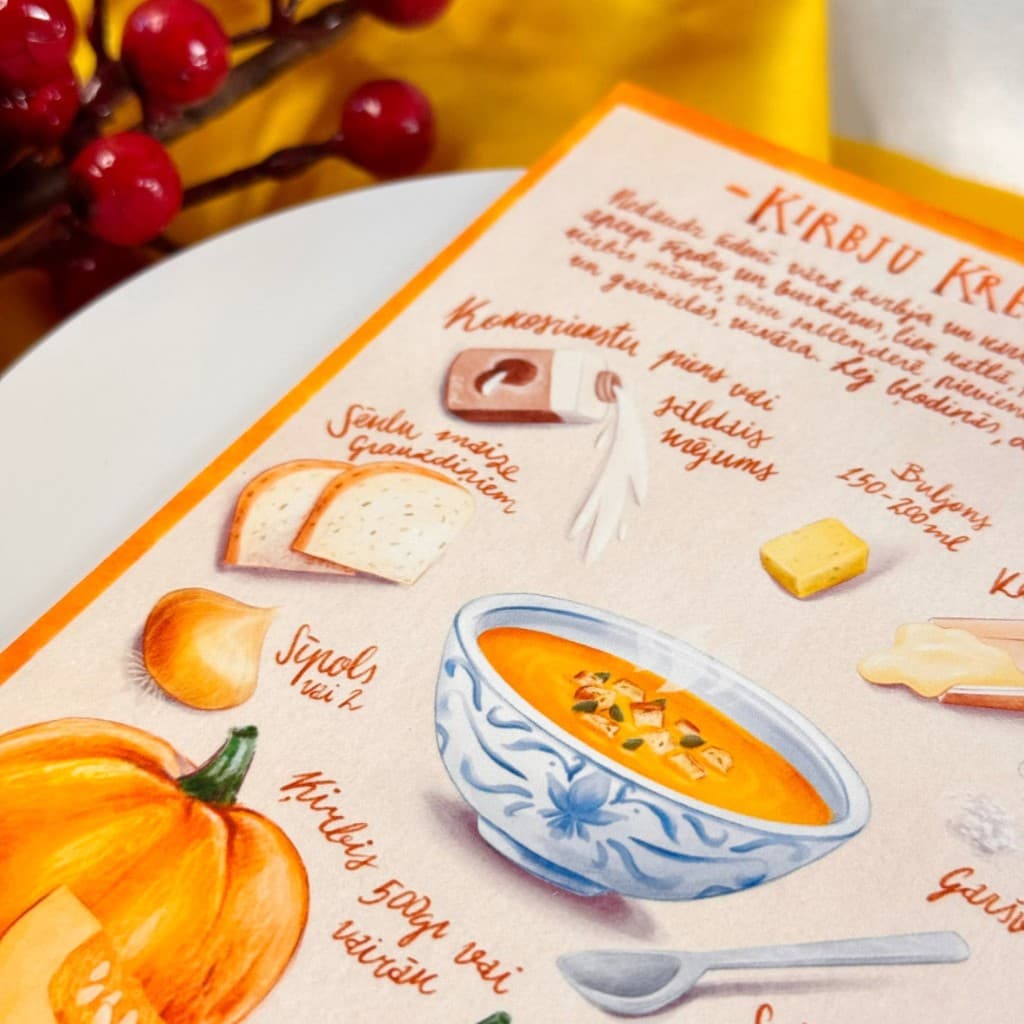 - ĶIRBJU KRE
vāra ķirbja un
apcep sīpolu un burkānus, liek katlā,
mīksts, visu sablenderē, pievien
un garšvielas, uzvāra. Lej bļodiņās,
Kokosriekstu piens vai
saldais
krējums
Sēklu maize
Grauzdiņiem
Buljons
150-200 ml
Sīpols
vai 2
Ķirbis
500gr vai
vairāk
Garšv